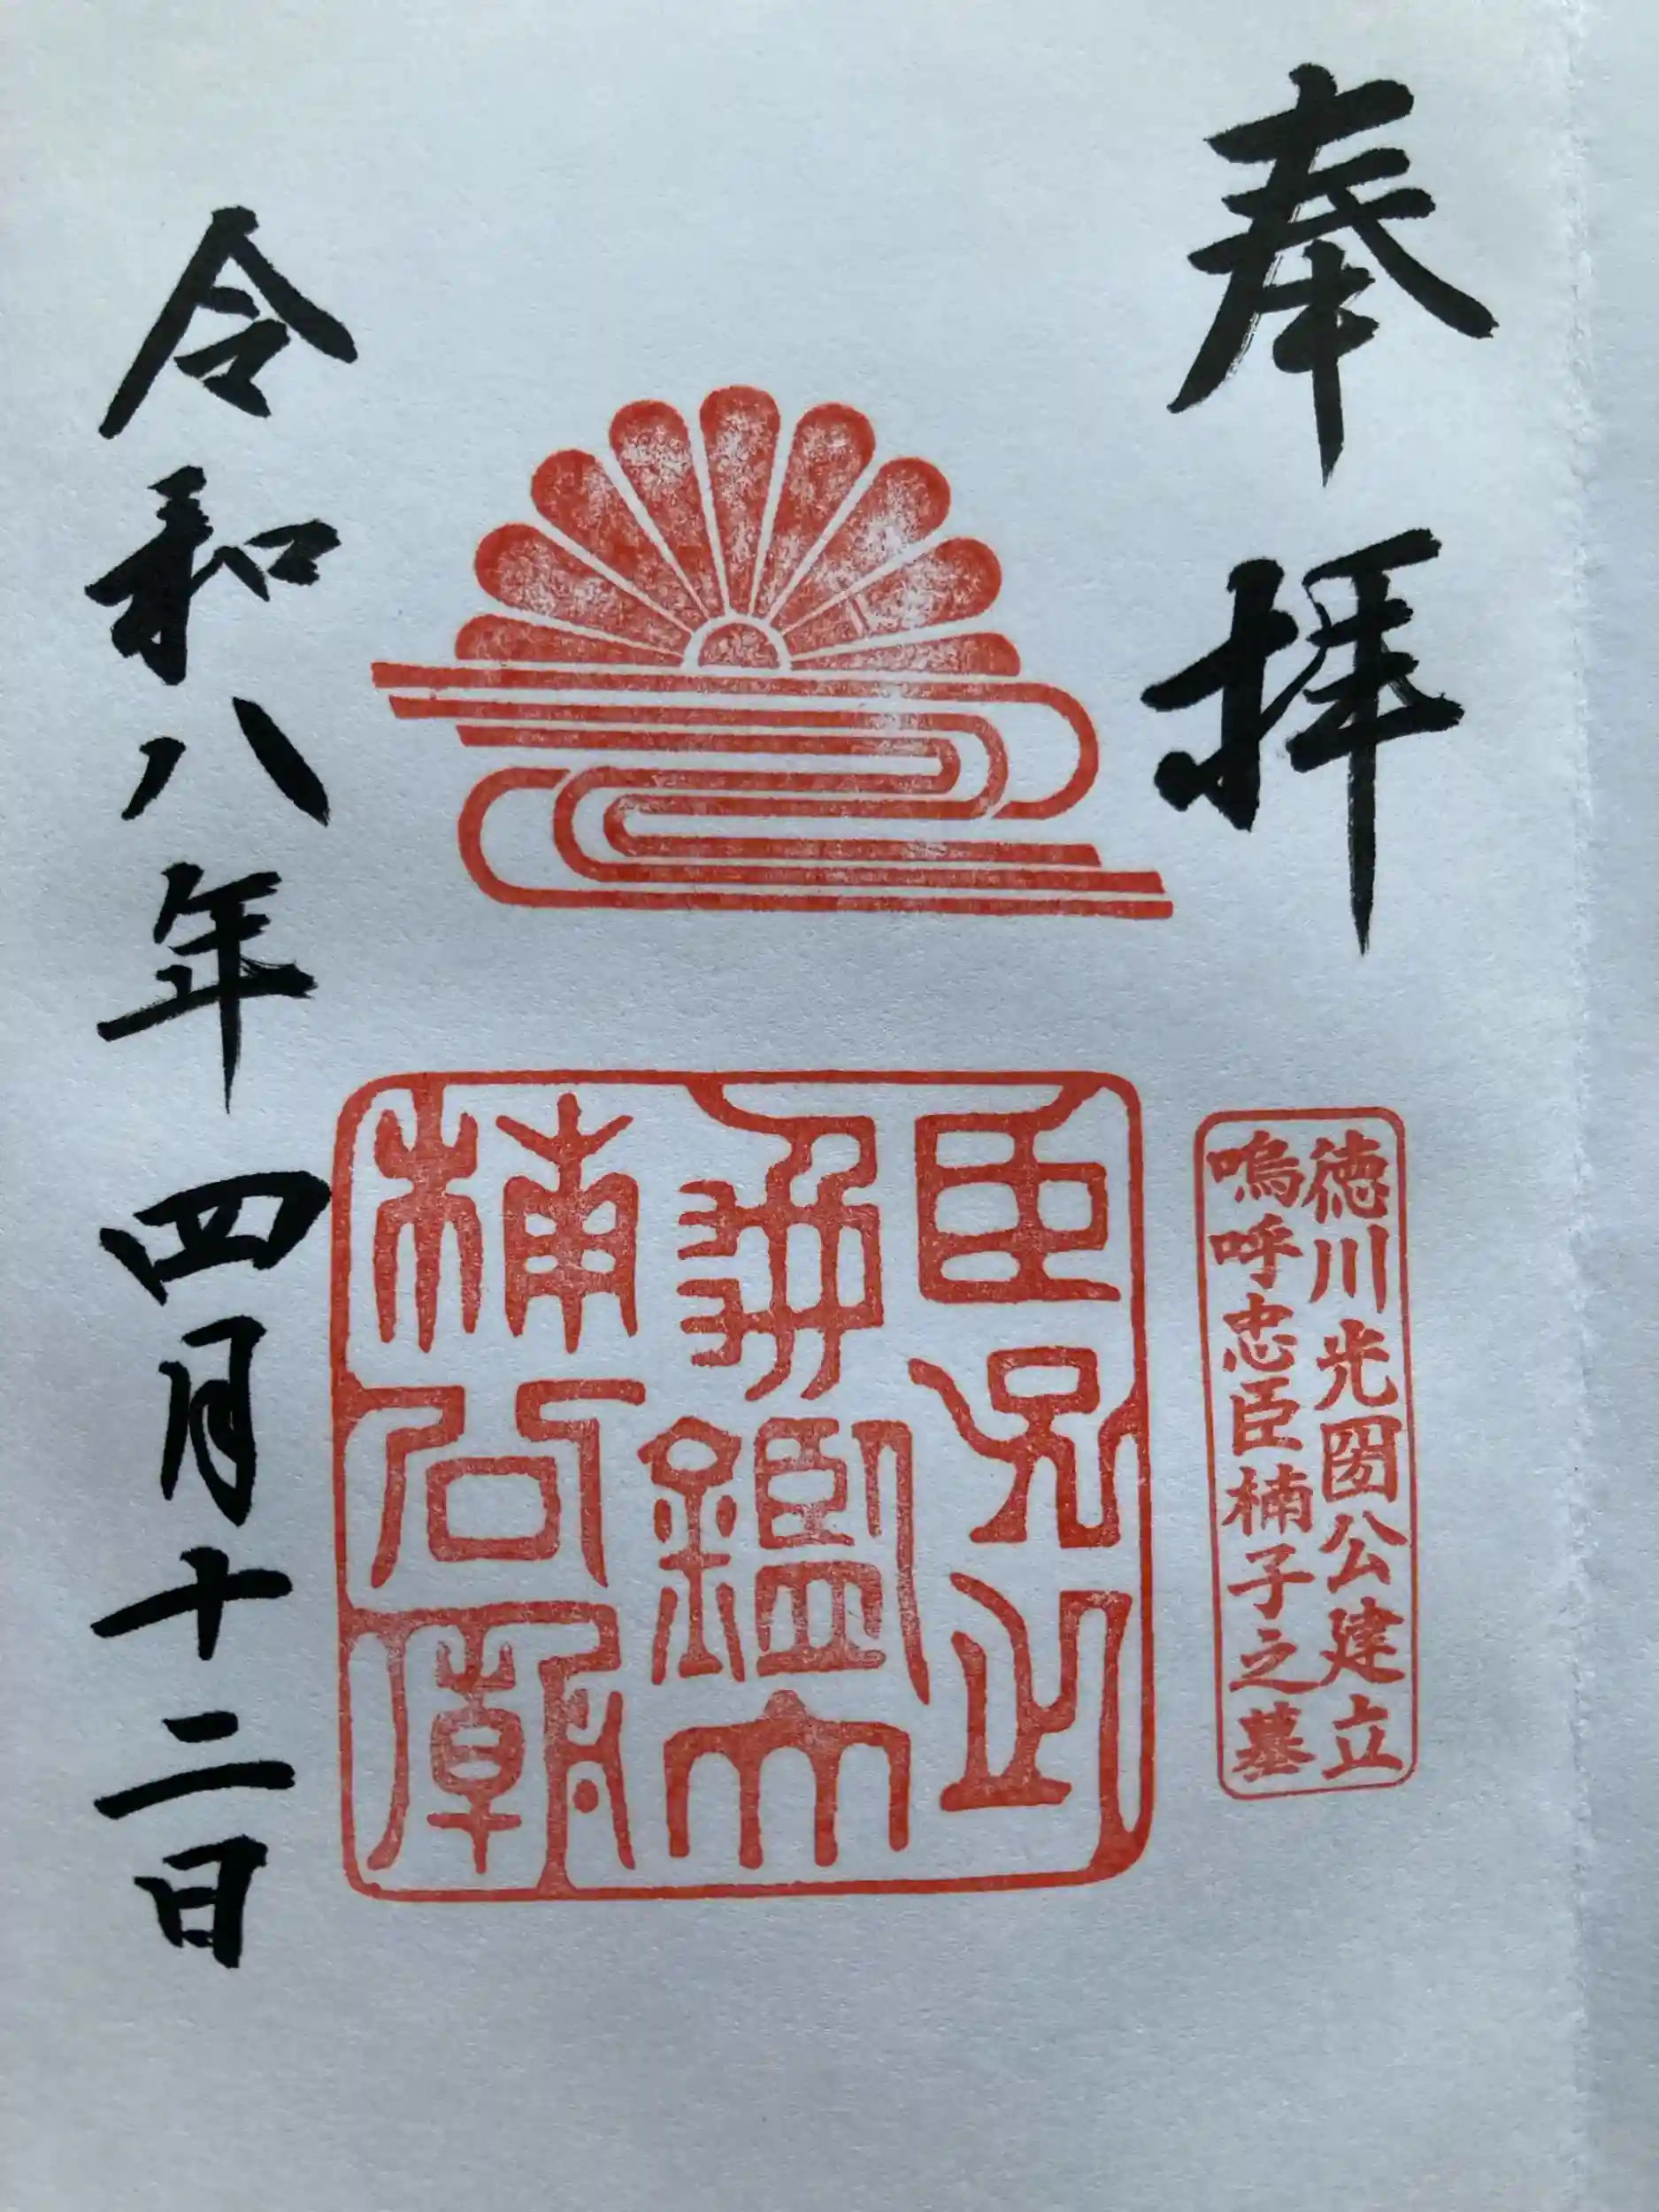 奉拝
徳川光圀公建立
嗚呼忠臣楠子之墓
臣子之
龜鑑大
楠公廟
令和八年四月十二日